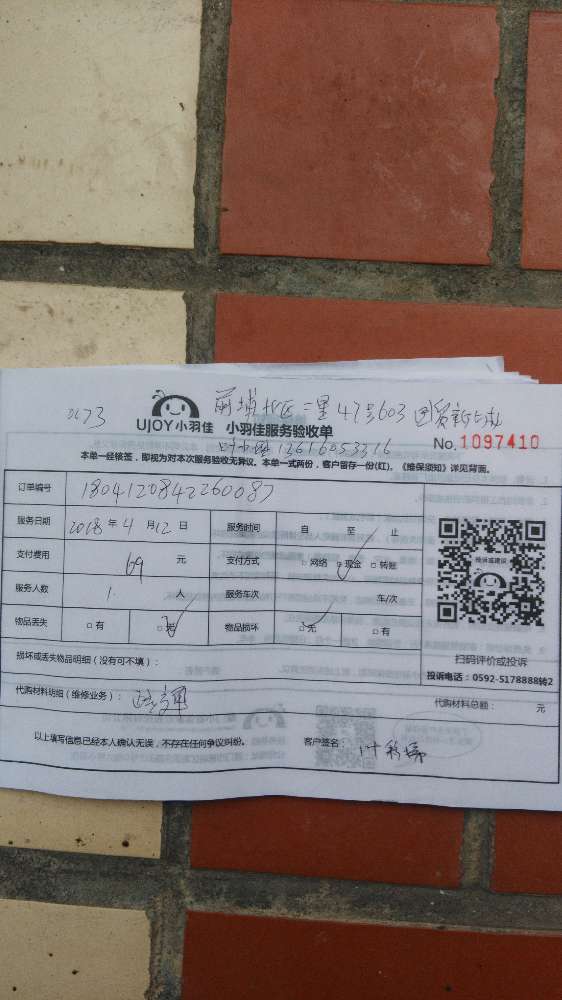 0173
埔 北区二里47号603
UJOY小羽佳 小羽佳服务验收单
13616053316
No. 1097410
本单一经核签，即视为对本次服务验收无异议。本单一式两份，客户留存一份(红)。《维保须知》详见背面。
订单编号 1804120842260087
服务日期 2018 年 4 月 12 日 服务时间 自 至 止
支付费用 69 元 支付方式 □网络 □现金 □转账
服务人数 1. 人 服务车次 车/次
物品丢失 □有 □无 物品损坏 □无 □有
投诉或建议
扫码评价或投诉
投诉电话：0592-5178888转2
损坏或丢失物品明细（没有可不填）：
代购材料明细（维修业务）： 代购材料总额： 元
以上填写信息已经本人确认无误，不存在任何争议纠纷。 客户签名： 叶彩